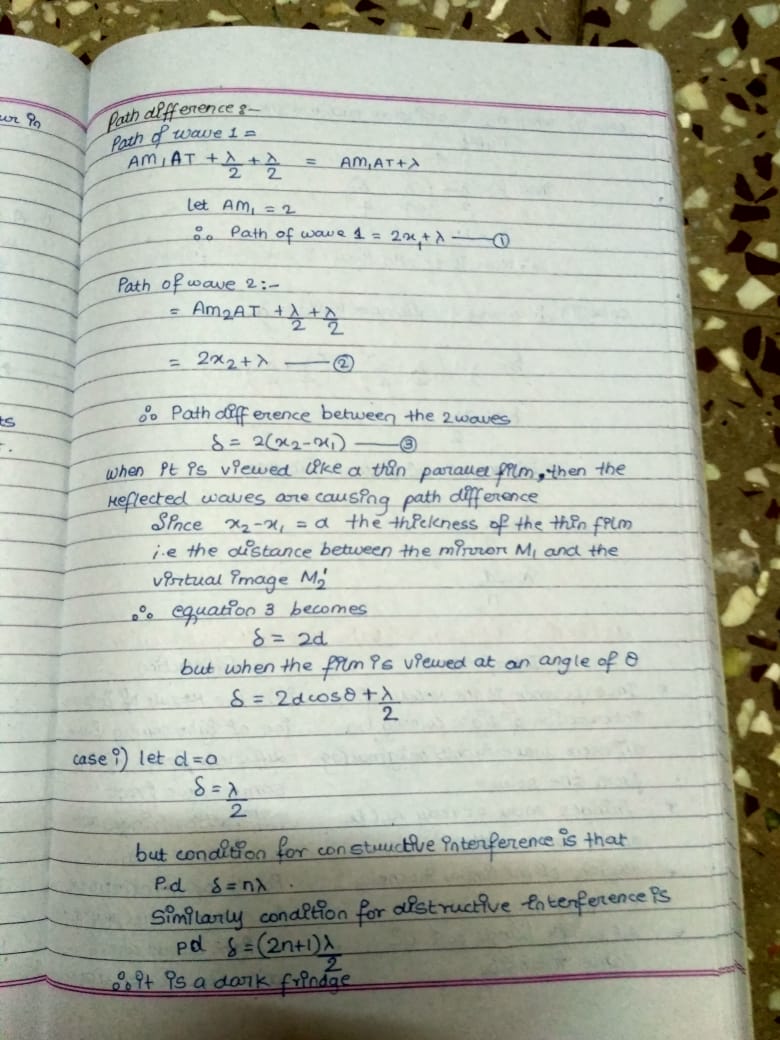 ur in
ts
Path difference :-
Path of wave 1 =
AM₁AT + λ/2 + λ/2 = AM₁AT + λ
let AM₁ = 2
∴ Path of wave 1 = 2x₁ + λ —— ①
Path of wave 2 :-
= AM₂AT + λ/2 + λ/2
= 2x₂ + λ —— ②
∴ Path difference between the 2 waves
δ = 2(x₂ - x₁) —— ③
when it is viewed like a thin parallel film, then the
reflected waves are causing path difference
Since x₂ - x₁ = d the thickness of the thin film
i.e the distance between the mirror M₁ and the
virtual image M₂'
∴ equation 3 becomes
δ = 2d
but when the film is viewed at an angle of θ
δ = 2d cosθ + λ/2
case i) let d = 0
δ = λ/2
but condition for constructive interference is that
P.d δ = nλ.
Similarly condition for distructive interference is
pd δ = (2n+1) λ/2
∴ it is a dark frindge